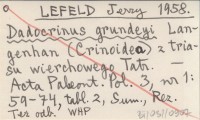 LEFELD Jerzy 1958.
Dadocrinus grundeyi Lan-
genhan (Crinoidea) z tria-
su wierchowego Tatr. —
Acta Palaeont. Pol. 3, nr 1:
59-74, tabl. 2, Sum., Rez.
Też odb. WHP